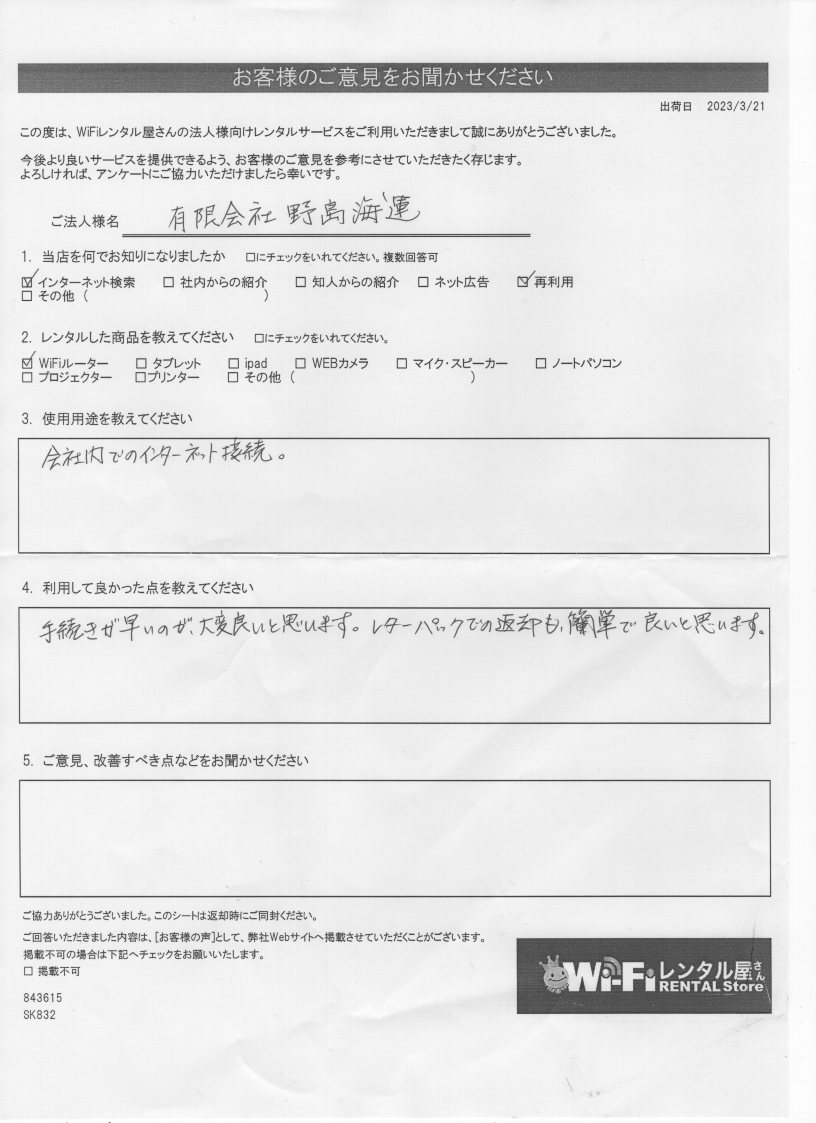 お客様のご意見をお聞かせください
出荷日 2023/3/21
この度は、WiFiレンタル屋さんの法人様向けレンタルサービスをご利用いただきまして誠にありがとうございました。
今後より良いサービスを提供できるよう、お客様のご意見を参考にさせていただきたく存じます。
よろしければ、アンケートにご協力いただけましたら幸いです。
ご法人様名 有限会社 野島海運
1. 当店を何でお知りになりましたか □にチェックをいれてください。複数回答可
☑ インターネット検索 □ 社内からの紹介 □ 知人からの紹介 □ ネット広告 ☑ 再利用
□ その他 ( )
2. レンタルした商品を教えてください □にチェックをいれてください。
☑ WiFiルーター □ タブレット □ ipad □ WEBカメラ □ マイク・スピーカー □ ノートパソコン
□ プロジェクター □プリンター □ その他 ( )
3. 使用用途を教えてください
会社内でのインターネット接続。
4. 利用して良かった点を教えてください
手続きが早いのが、大変良いと思います。レターパックでの返却も、簡単で良いと思います。
5. ご意見、改善すべき点などをお聞かせください
ご協力ありがとうございました。このシートは返却時にご同封ください。
ご回答いただきました内容は、[お客様の声]として、弊社Webサイトへ掲載させていただくことがございます。
掲載不可の場合は下記へチェックをお願いいたします。
□ 掲載不可
843615
SK832
Wi-Fiレンタル屋さん
RENTAL Store